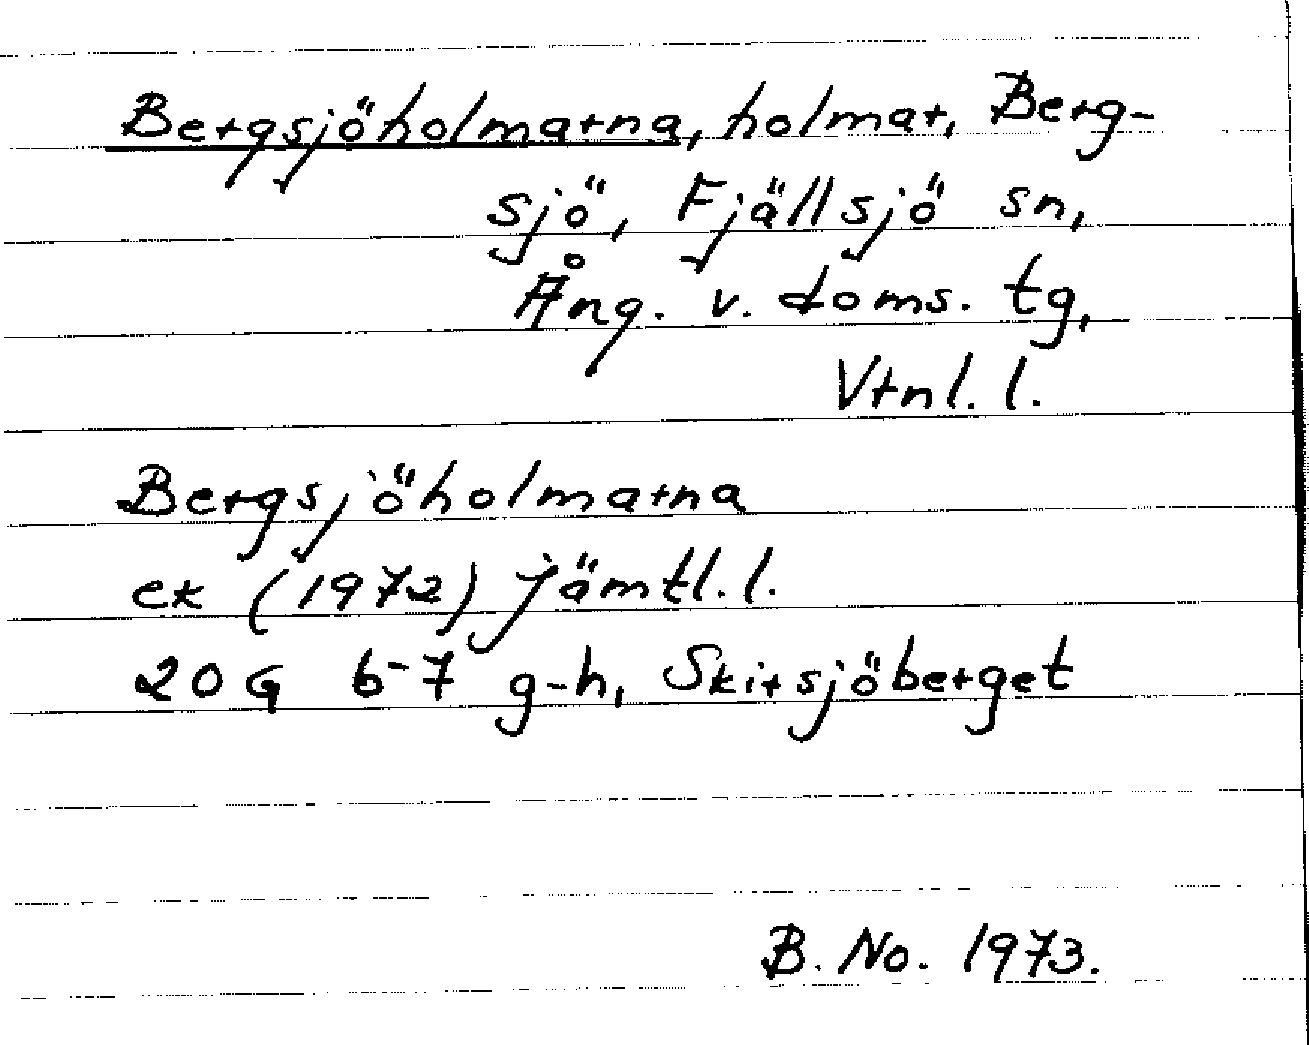 Bergsjöholmarna, holmar, Berg-
sjö, Fjällsjö sn,
Ång. v. doms. tg,
Vtnl. l.
Bergsjöholmarna
ek (1972) Jämtl. l.
20 G 6-7 g-h, Skirsjöberget
B. No. 1973.